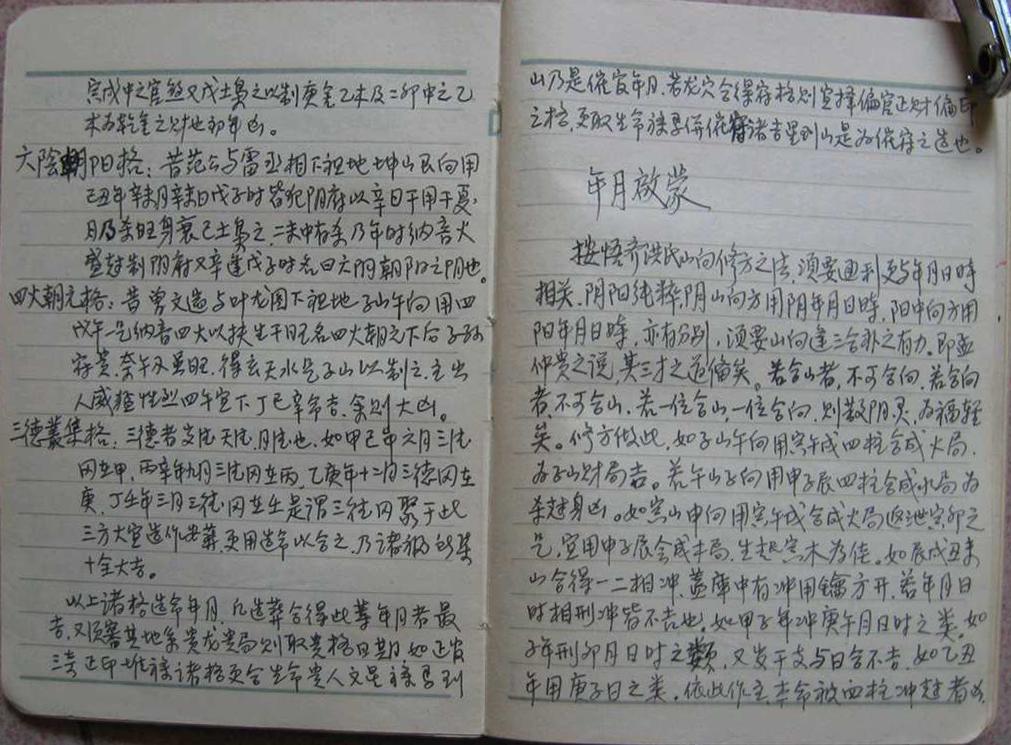 寅戌中之官煞又戌土枭之以制庚金乙未及二卯中之乙
木为乾金之财也卯年凶。
六陰朝阳格：昔范公与雷丞相下祖地坤山艮向用
己丑年辛未月辛未日戊子时皆犯阴府以辛日干用于夏
月乃杀旺身衰己土枭之，二未中有杀乃年时纳音火
盛尅制阴府又辛逢戊子时名曰六阴朝阳之阴也。
四火朝元格：昔曾文遄与叶龙图下祖地子山午向用四
戊午是纳音四火以扶生干旺名四火朝元下后子孙
存荣，奈午刃虽旺，得玄天水是子山以制之，主出
人威猛性烈四午宜下丁巳辛命吉，余则大凶。
三德叢集格：三德者支德天德月德也，如甲己年六月三德
同在甲，丙辛年九月三德同在丙，乙庚年十二月三德同在
庚，丁壬年三月三德同在壬是谓三德同聚于此
三方大宜造作安葬，更用造命以合之，乃诸福所集
十全大吉。
以上诸格造命年月，凡造葬合得此等年月者最
吉，又须審其地系贵龙贵局则取贵格日期，如正官
三奇正印堆禄诸格更合生命贵人文星禄马到
山乃是催官年月，若龙穴合得存格则宜择偏官正财偏印
之格，更取生命禄马併催存诸吉星到山是为催存之造也。
年月啟蒙
按悟齐洪氏山向修方之法，须要通利更与年月日時
相关，阴阳纯粹，阴山向方用阴年月日時，阳山向方用
阳年月日時，亦有分别，须要山向逢三合补之有力，即孟
仲贵之说，其三才之道備矣。若合山者，不可合向，若合向
者，不可合山，若一位合山，一位合向，则散阴灵，为福轻
矣。修方做此，如子山午向用寅午戌四柱合成火局，
为子山财局吉。若午山子向用申子辰四柱合成水局为
杀尅身凶。如寅山申向用寅午戌合成火局返泄寅卯之
气，宜用申子辰合成水局，生起寅木为佳。如辰戌丑未
山合得一二相冲，蓋库中有冲用鑰方开，若年月日
时相刑冲皆不吉也，如甲子年冲庚午月日时之类，如
子年刑卯月日时之類，又岁干支与日合不吉，如乙丑
年用庚子日之类，依此作主，本命被四柱冲尅者凶，